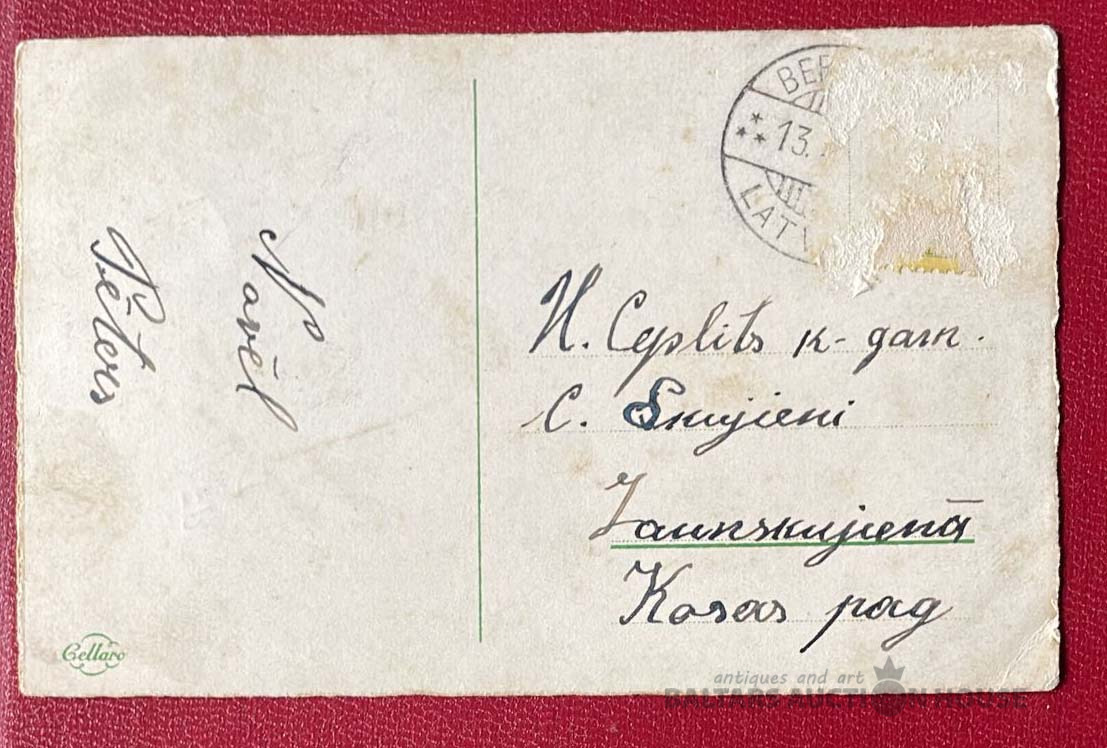 Novēl
Pēters
BER
13.
LATV
H. Ceplits k-gam.
C. Skujieni
Jaunskujienā
Kosas pag
Cellaro
antiques and art
BALTARS AUCTION HOUSE